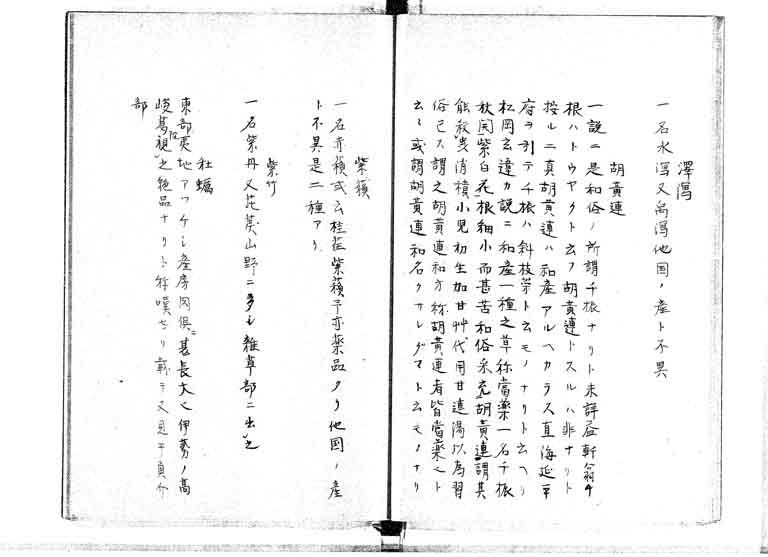 澤瀉
一名水瀉又禹瀉他国ノ產ト不異
胡黃連
一說ニ是和俗ノ所謂千振ナリト未詳益軒翁千
根ハトウヤクト云フ胡黃連トスルハ非ナリト
按ルニ真胡黃連ハ和產アルヘカラス直海延平
府ヲ引テ千振ハ斜枝茶トム云モノナリト云ヘリ
松岡玄達カ說ニ和產一種之草称當藥一名千振
秋開紫白花根細小而甚苦和俗采充胡黃連謂其
能殺虫消積小児初生加甘艸代用甘連湯以為習
俗已久謂之胡黃連和方称胡黃連者皆當藥也ト
云々或謂胡黃連和名クサレダマト云モノナリ
紫蘓
一名赤蘓或云桂荏紫蘓子亦藥品タリ他国ノ產
ト不異是二種アリ
紫竹
一名紫丹又茈莀山野ニ多シ雜草部ニ出之
牡蠣
東部夷地アツケシ產房図俱ニ甚長大也伊勢ノ高
峻夢視之絶品ナリト称嘆セリ載テ又見于真介
部